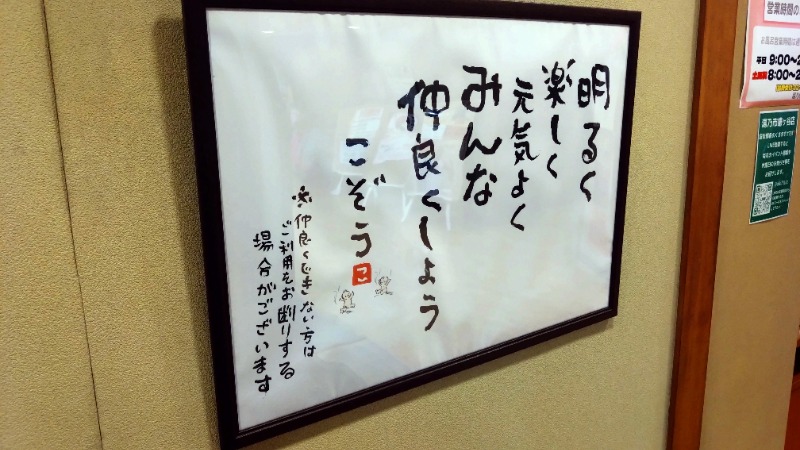 明るく
楽しく
元気よく
みんな
仲良くしよう
こぞう
こ
※仲良くできない方は
ご利用をお断りする
場合がございます
営業時間の
平日 9:00～2
土日祝 8:00～2
湯乃市鎌ケ谷店